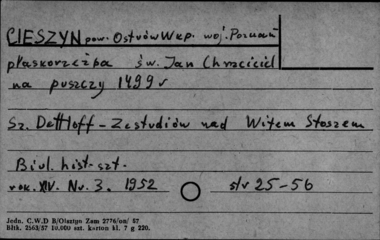 CIESZYN pow. Ostrów Wkp. woj. Poznań
płaskorzeźba św. Jan Chrzciciel
na puszczy 1499 r
Sz. Dettloff - Ze studiów nad Witem Stoszem
Biul. hist. szt.
rok. XIV. Nr. 3. 1952 str 25-56
Jedn. C.W.D B/Olsztyn Zam 2776/on/ 57
Bltk. 2563/57 10.000 szt. karton kl. 7 g 220.